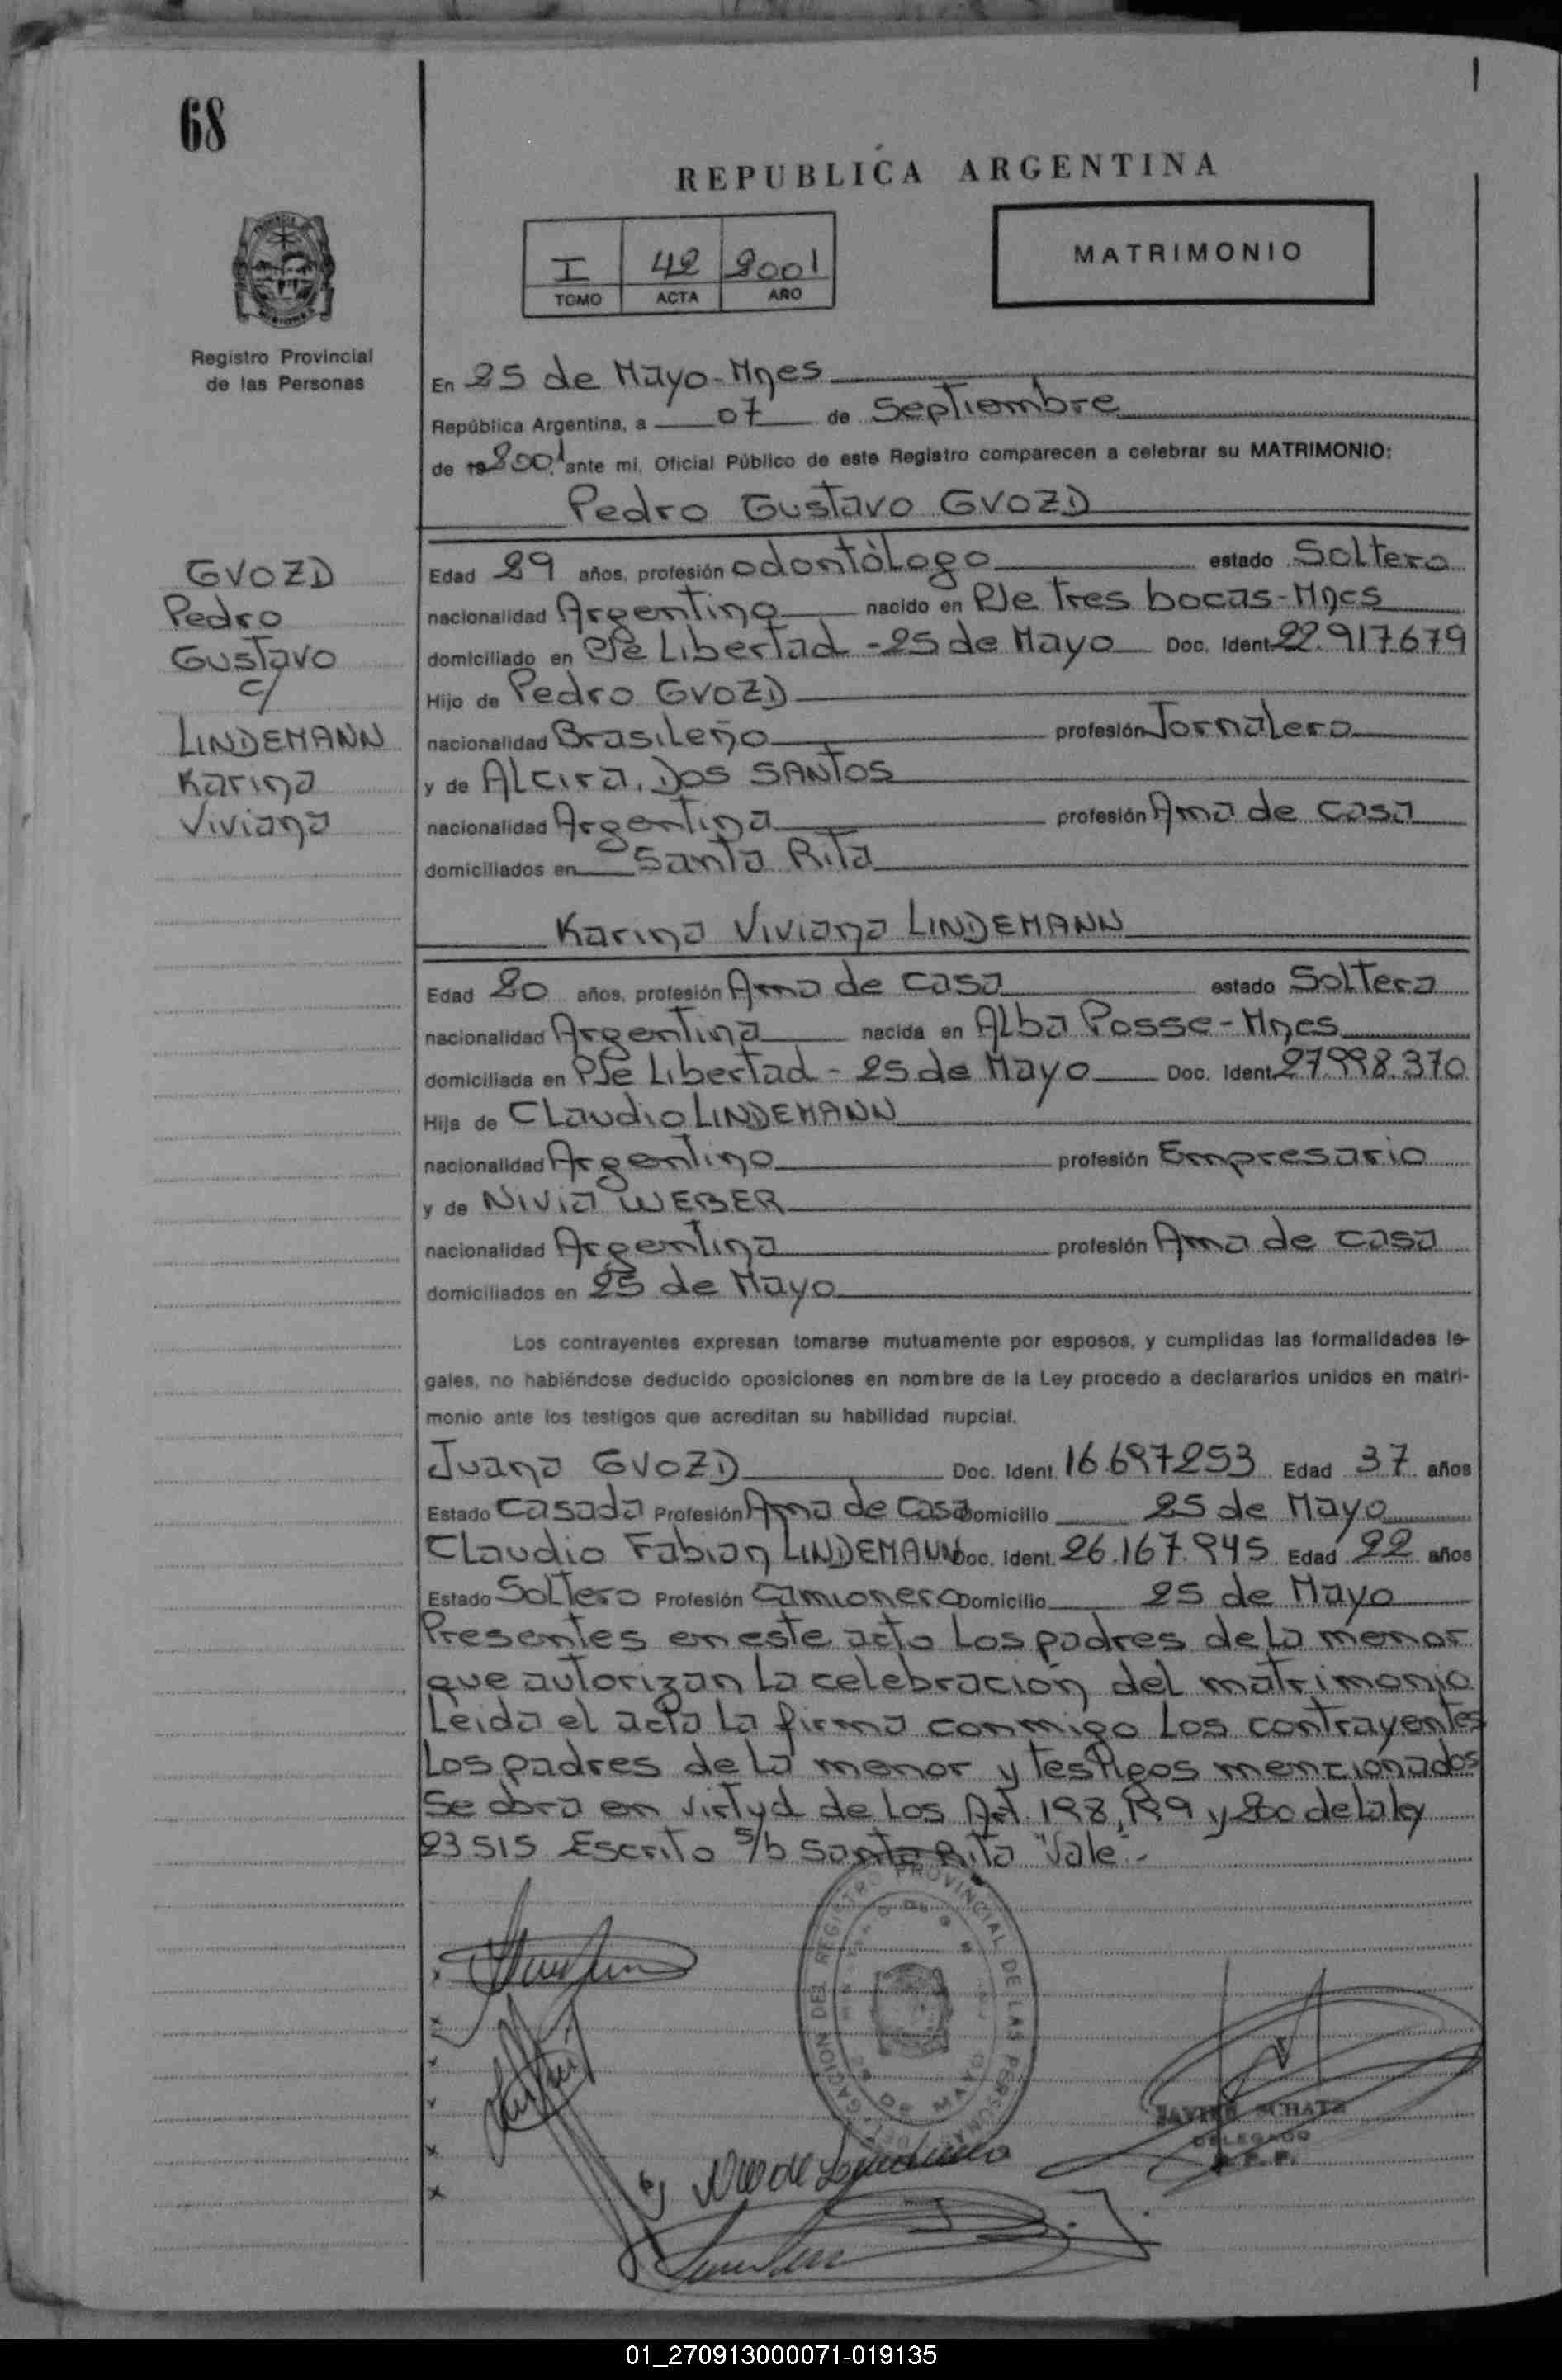 68
REPUBLICA ARGENTINA
I 42 2001
TOMO ACTA AÑO
MATRIMONIO
Registro Provincial
de las Personas
En 25 de Mayo-Mnes
República Argentina, a 07 de Septiembre
de 19 2001 ante mi, Oficial Público de este Registro comparecen a celebrar su MATRIMONIO:
Pedro Gustavo GVOZD
GVOZD
Pedro
Gustavo
c/
LINDEMANN
Karina
Viviana
Edad 29 años, profesión odontòlogo estado Soltero
nacionalidad Argentino nacido en Pje Tres bocas-Mnes
domiciliado en Pje Libertad - 25 de Mayo Doc. Ident 22.917.679
Hijo de Pedro GVOZD
nacionalidad Brasileño profesión Jornalero
y de Alcira, DOS SANTOS
nacionalidad Argentina profesión Ama de casa
domiciliados en Santa Rita
Karina Viviana LINDEMANN
Edad 20 años, profesión Ama de casa estado Soltera
nacionalidad Argentina nacida en Alba Posse-Mnes
domiciliada en Pje Libertad - 25 de Mayo Doc. Ident 27.998.370
Hija de Claudio LINDEMANN
nacionalidad Argentino profesión Empresario
y de Nivia WEBER
nacionalidad Argentina profesión Ama de casa
domiciliados en 25 de Mayo
Los contrayentes expresan tomarse mutuamente por esposos, y cumplidas las formalidades le-
gales, no habiéndose deducido oposiciones en nombre de la Ley procedo a declararlos unidos en matri-
monio ante los testigos que acreditan su habilidad nupcial.
Juana GVOZD Doc. Ident. 16.697253 Edad 37 años
Estado Casada Profesión Ama de Casa Domicilio 25 de Mayo
Claudio Fabian LINDEMANN Doc. Ident. 26.167.945 Edad 22 años
Estado Soltero Profesión Camionero Domicilio 25 de Mayo
Presentes en este acto los padres de la menor
que autorizan la celebración del matrimonio
Leida el acta la firma conmigo los contrayentes
los padres de la menor y testigos mencionados
Se obra en virtud de los Art. 198, 199 y 200 de la ley
23515 Escrito s/b Santa Rita "Vale".-
DELEGACION DEL REGISTRO PROVINCIAL DE LAS PERSONAS
25 DE MAYO
JAVIER SCHATZ
DELEGADO
R.P.P.
01_270913000071-019135